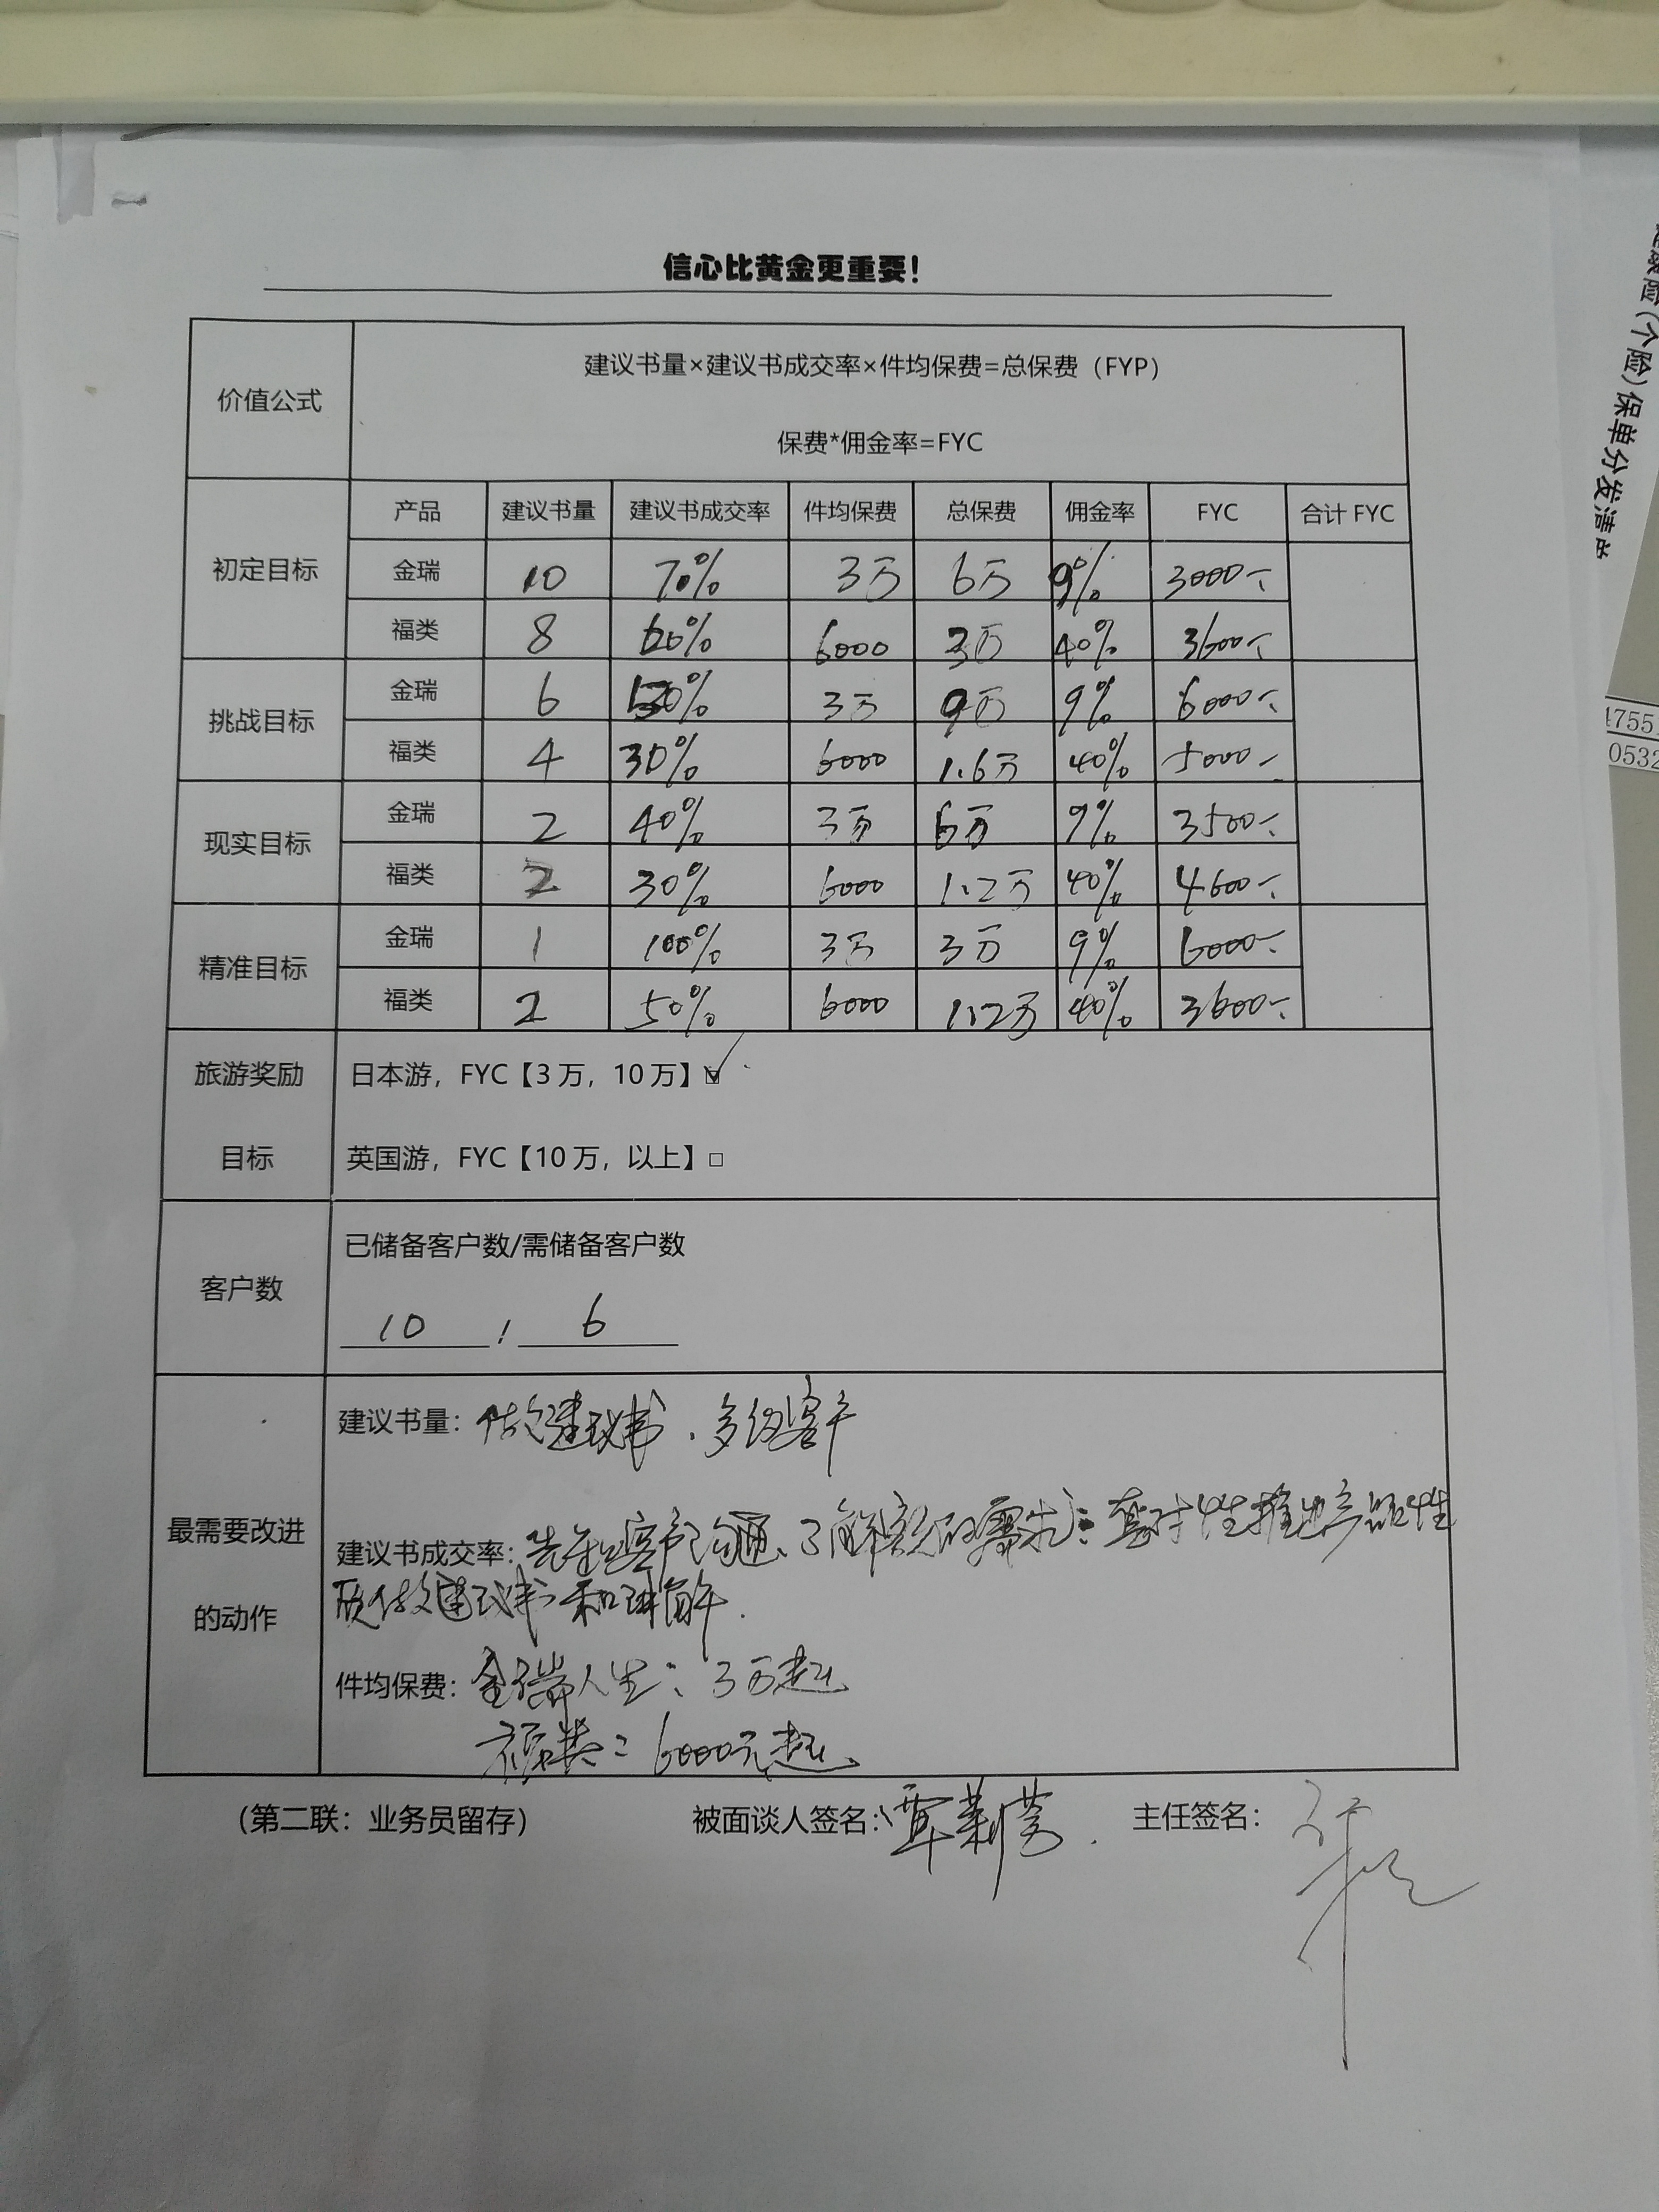 信心比黄金更重要！
价值公式
建议书量×建议书成交率×件均保费=总保费（FYP）
保费*佣金率=FYC
产品 建议书量 建议书成交率 件均保费 总保费 佣金率 FYC 合计 FYC
初定目标
金瑞 10 70% 3万 6万 9% 3000
福类 8 60% 6000 3万 40% 3600
挑战目标
金瑞 6 50% 3万 9万 9% 6000
福类 4 30% 6000 1.6万 40% 5000
现实目标
金瑞 2 40% 3万 6万 9% 3500
福类 2 30% 6000 1.2万 40% 4600
精准目标
金瑞 1 100% 3万 3万 9% 6000
福类 2 50% 6000 1.2万 40% 3600
旅游奖励
目标
日本游，FYC【3万，10万】☑
英国游，FYC【10万，以上】□
客户数
已储备客户数/需储备客户数
10 / 6
最需要改进
的动作
建议书量：做建议书，多约客户
建议书成交率：先和客户沟通、了解客户的需求：针对性推出产品性
质做建议书和讲解.
件均保费：金瑞人生：3万起
福类：6000元起
（第二联：业务员留存） 被面谈人签名： 主任签名：
(个险)保单分发清单
4755
0532